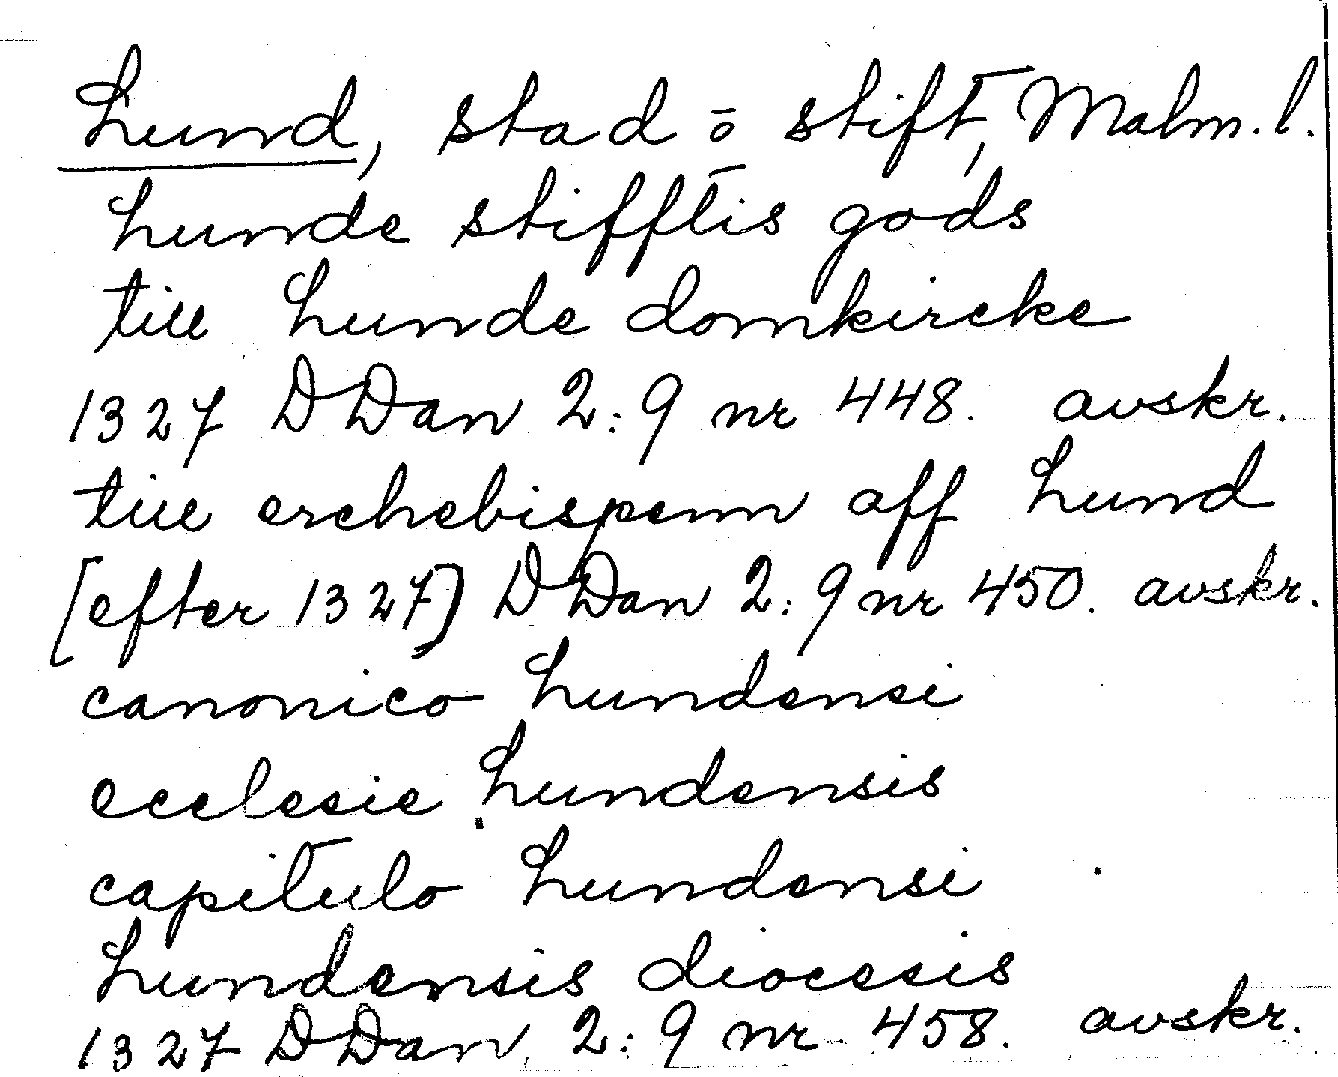 Lund, stad o stift, Malm. l.
Lunde stifftis gods
till Lunde domkircke
1327 DDan 2:9 nr 448. avskr.
till erchebispenn aff Lund
[efter 1327] DDan 2:9 nr 450. avskr.
canonico Lundensi
ecclesie Lundensis
capitulo Lundensi
Lundensis diocesis
1327 DDan 2:9 nr 458. avskr.